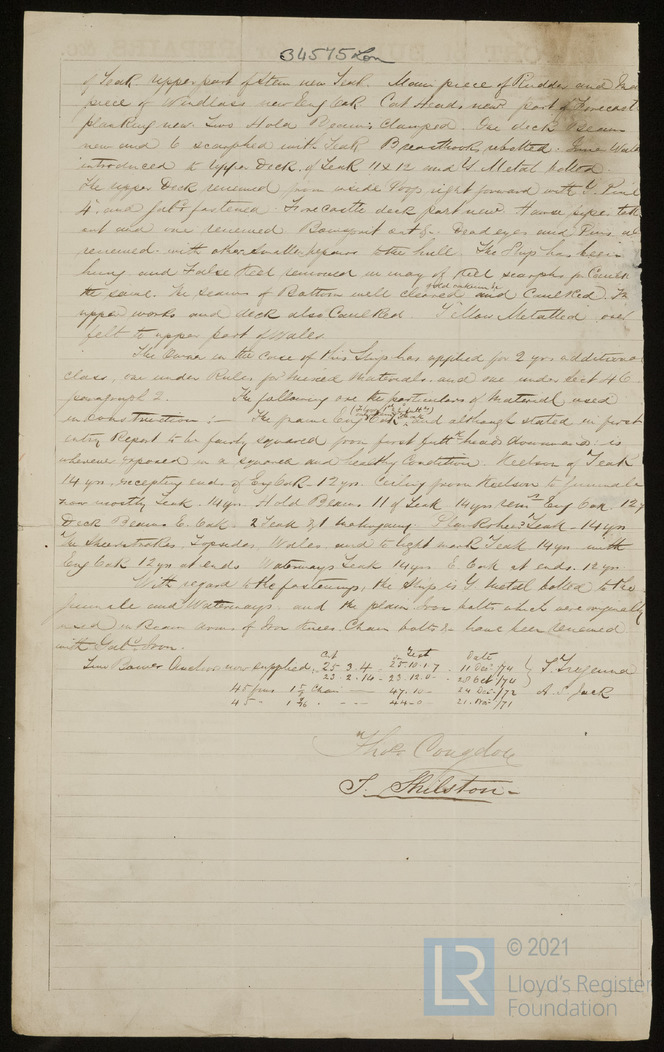 34575 Lon
of Teak. Upper part of Stem new Teak. Main piece of Rudder and
piece of Windlass new Eng Oak Cat Heads new part of Forecastle
planking new. Two Hold Beams Clamped. One deck Beam
new and 6 scarphed with Teak Breasthook rebolted. Inner Wale
introduced to upper Deck of Teak 11 x 12 and Y Metal bolted
The upper Deck renewed from inside Poop right forward with Y. Pine
4 and fastened. Forecastle deck part new. Hawse pipes taken
out and one renewed Bowsprit out & Dead eyes and
renewed with other smaller repairs to the hull. The Ship has been
hung and False Keel removed in way of Keel scarphs to Caulk
the same. The seams of Bottom well cleaned and Caulked. The
upper works and deck also Caulked. Y Metalled over
felt to upper part of Wales.
The Owner in the case of this Ship has applied for 2 yrs additional
class, one under Rules for mixed materials and one under Sect 46
paragraph 2. The following are the particulars of Material used
in construction :- The frame Eng Oak and although stated in first
entry Report to be fairly squared from first futtk heads downwards is
wherever exposed in a squared and healthy Condition. Keelson of Teak
14 yrs, excepting end of Eng Oak. 12 yrs. Ceiling from Keelson to
now mostly Teak. 14 yrs. Hold Beams 11 of Teak 14 yrs Eng Oak. 12 y
Deck Beams E. Oak. 2 Teak & 1 Mahogany. Teak - 14 yrs
The Sheerstrakes, Topsides, Wales, and to light mark Teak 14 yrs with
Eng Oak 12 yrs at ends Waterways Teak 14 yrs E. Oak at ends. 12 yrs.
With regard to the fastenings, the Ship is Y Metal bolted to the
and Waterways. and the plain Iron bolts which were originally
used in Beam arms of Iron Knees Chain bolts &c have been renewed
with Galvd Iron.
Cwt Test Date
Two Bower Anchors now supplied, 25.3.4 25.10.1.7 11 Dec /74 T. Tregenna
23.2.14 - 23.12.0 - 28 Oct /74 A. S. Jack
45 fms Chain 47.10 - 24 Dec /72
45 - 1 9/16 - - - 44-0 - 21. /71
Thos Congdon
T. Shilston
LR
© 2021
Lloyd's Register
Foundation